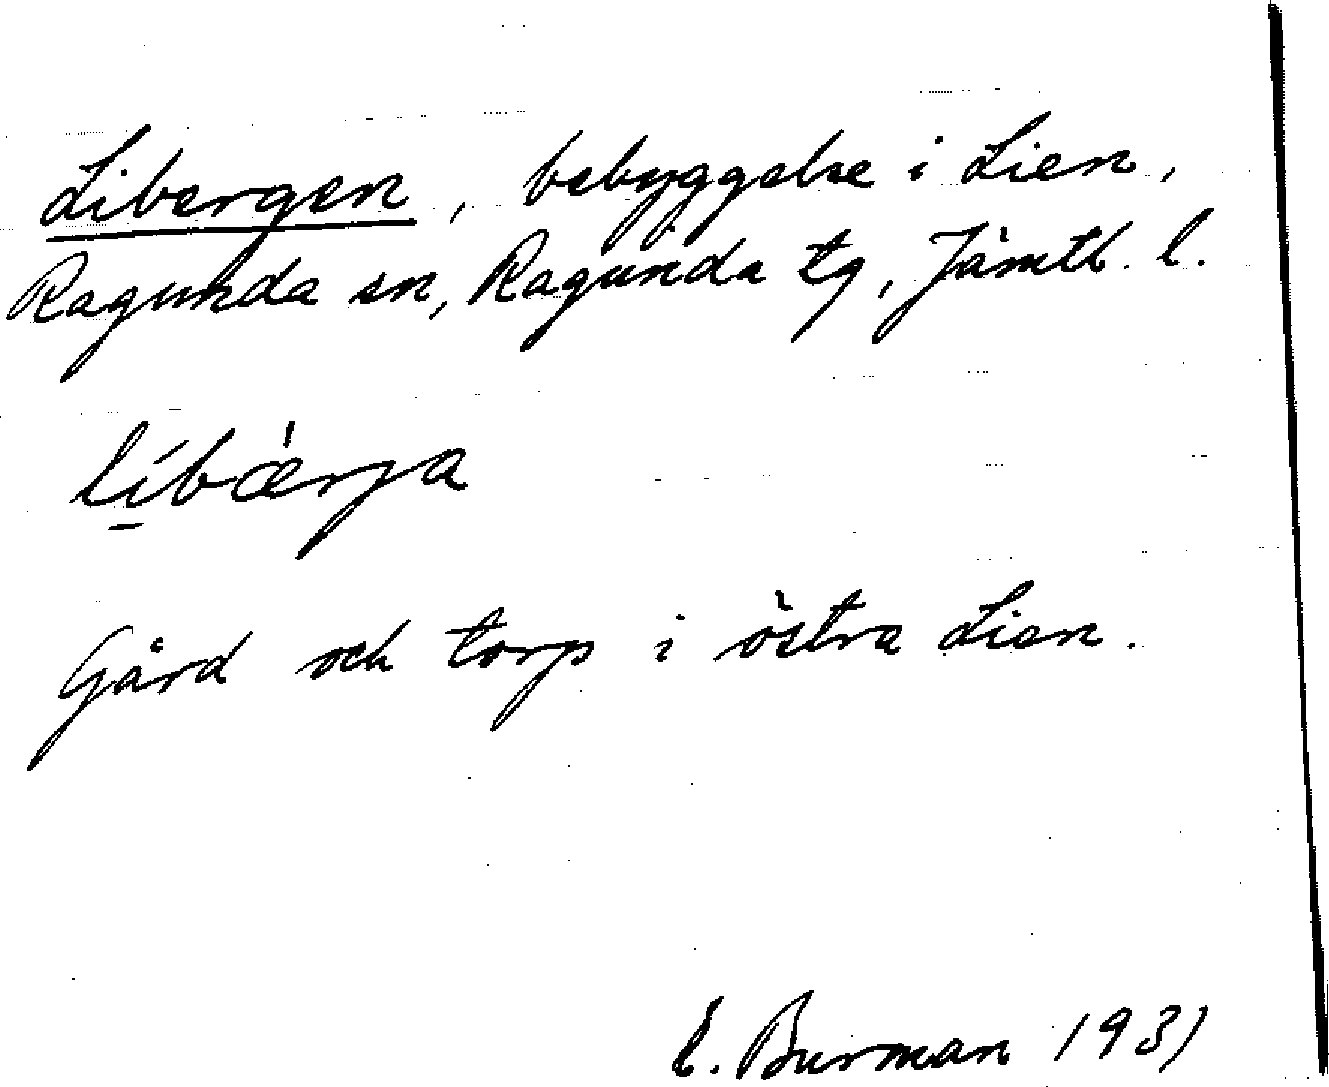 Libergen, bebyggelse i Lien,
Ragunda sn, Ragunda tg, Jämtl. l.
líbæ̀rja
Gård och torp i östra Lien.
E. Burman 1931